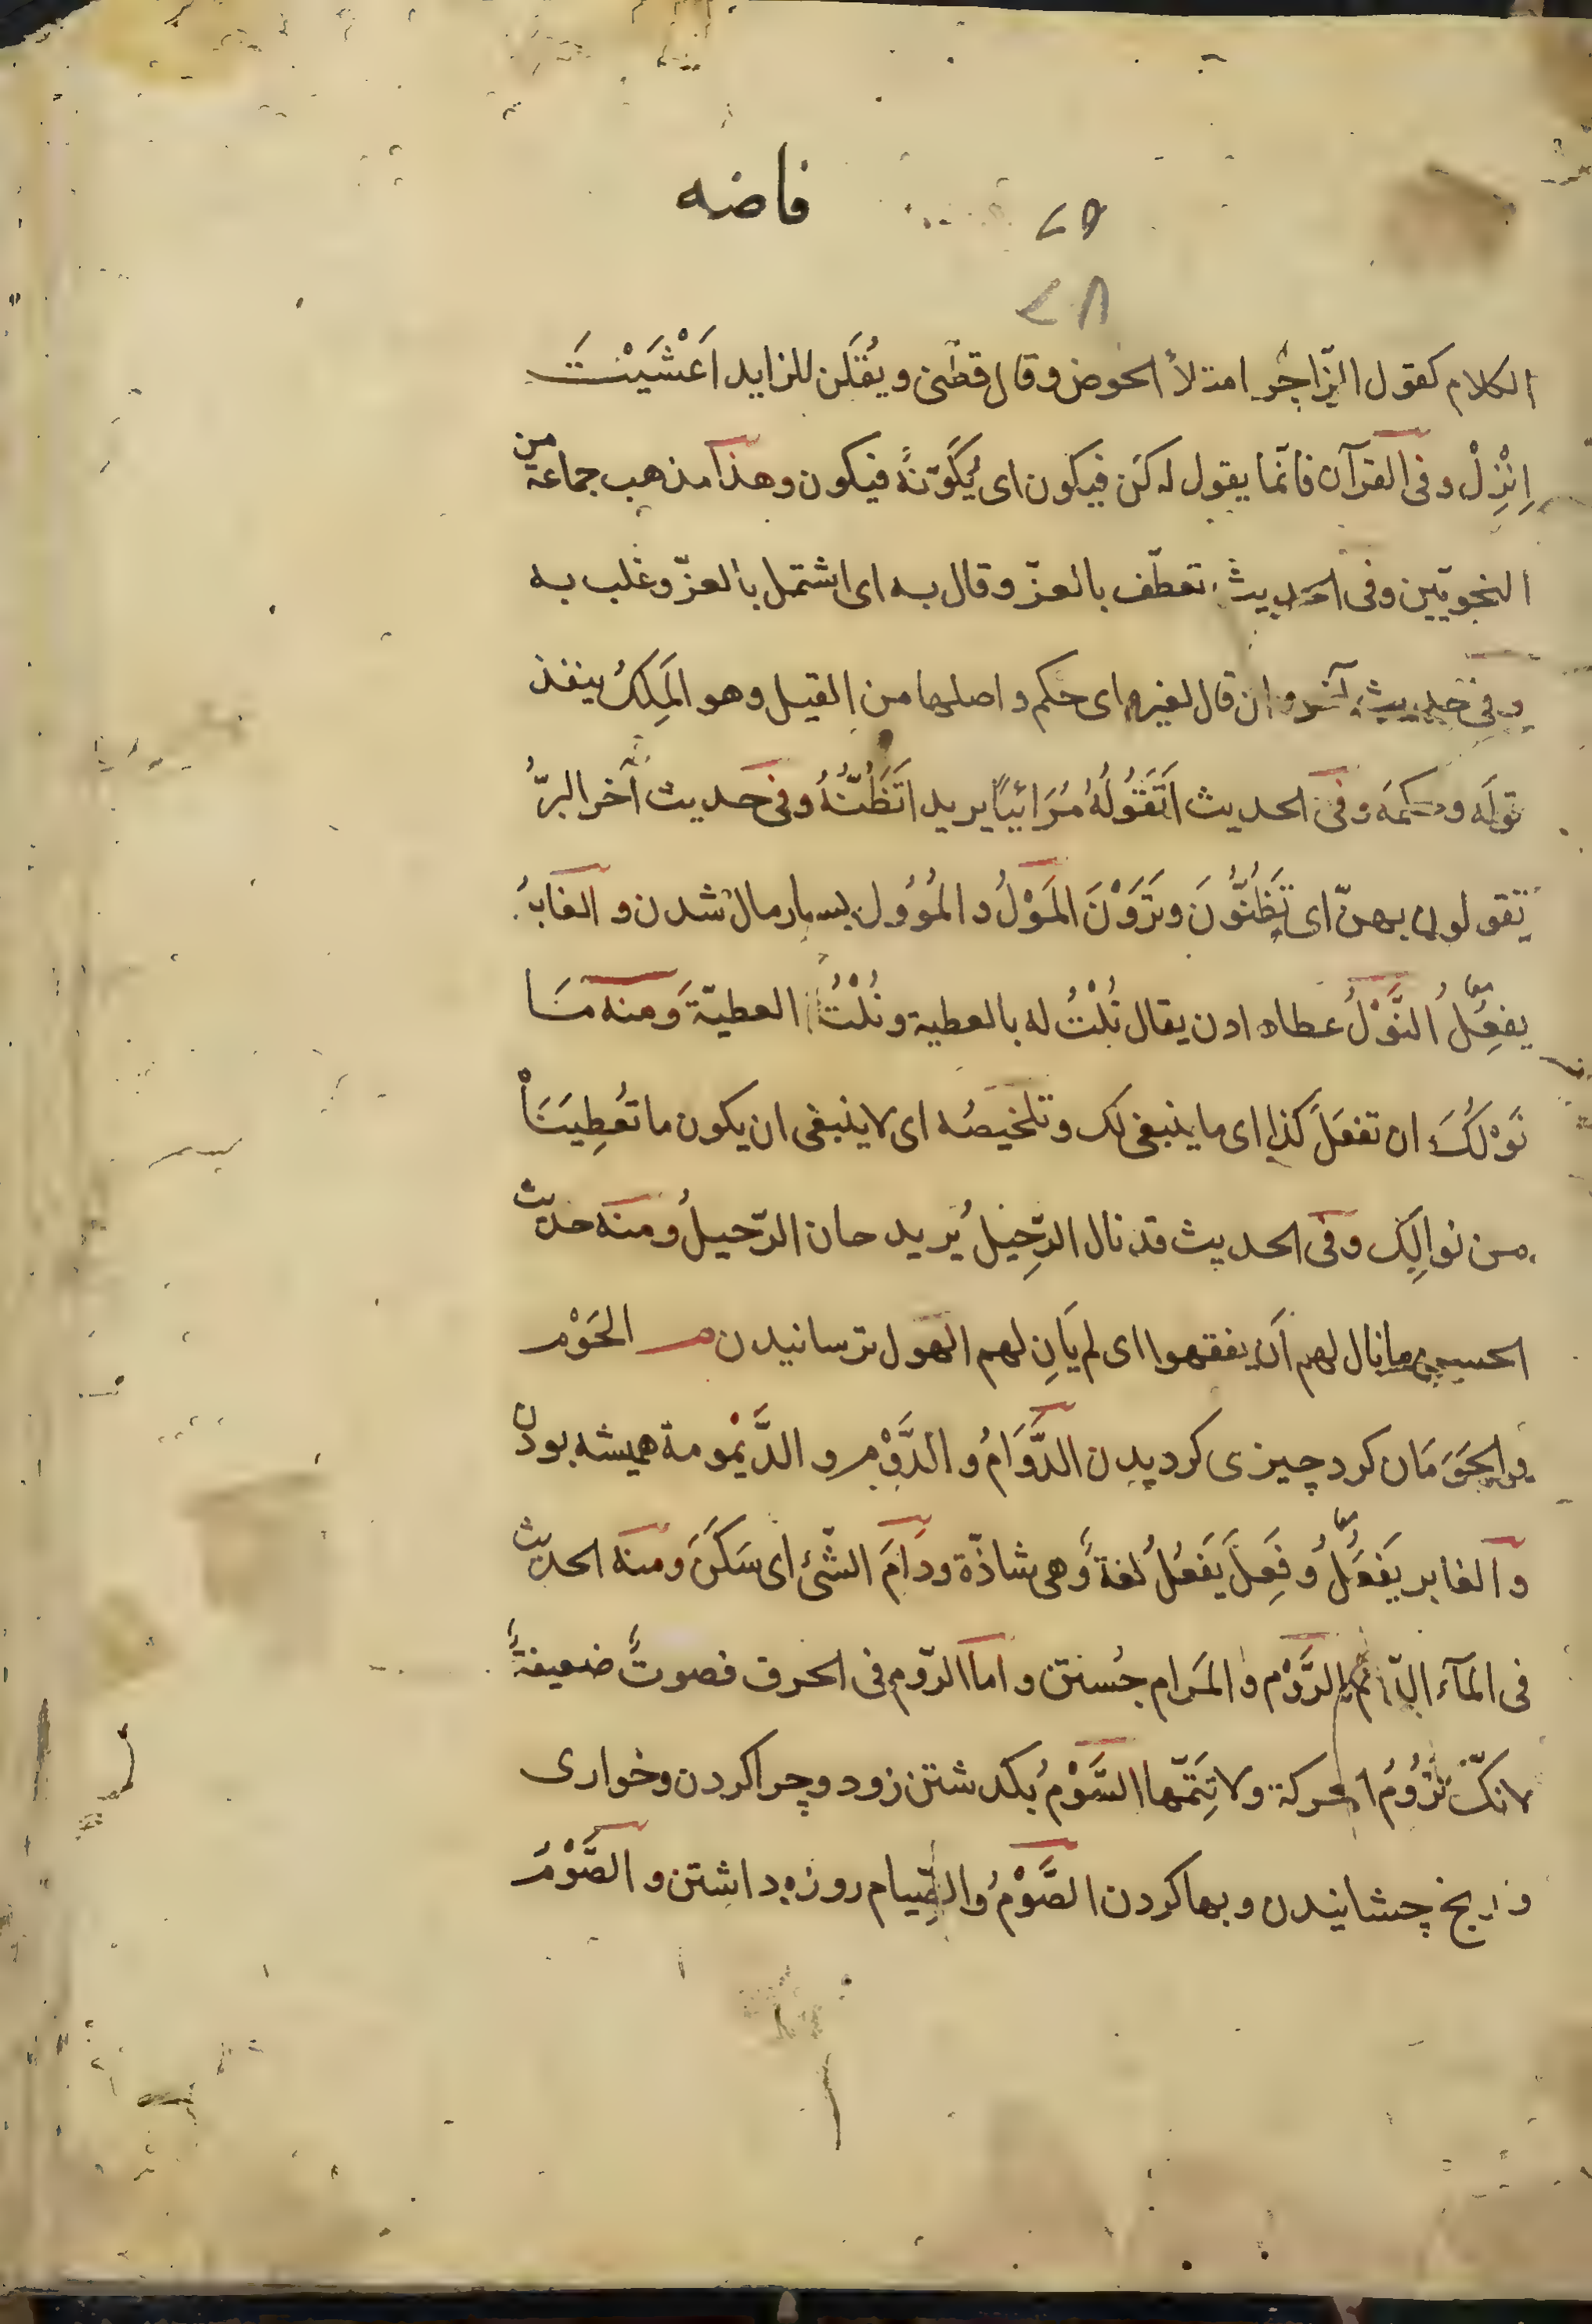 فاضه
الكلام كقول الرّاجز امتلأ الحوض وقال قطنى ويُقَلَن للزايد اَعْشَيْتَ
اِنْزِلْ وفى القرآن فانّما يقول له كن فيكون اى يُكَوّنهُ فيكون وهذا مذهب جماعة من
النحويّين وفى الحديث تعطّف بالعزّ وقال به اى اشتمل بالعزّ وغلب به
وفى حديث آخر وان قال لغيره اى حكم واصلها من القيل وهو المَلِكُ ينفذ
قوله وحكمه وفى الحديث اَتَقُولُهُ مُرَائيًا يريد اَتَظُنّهُ وفى حديث آخر البرَّ
تقولون بهنّ اى تَظُنُّونَ وتَرَوْنَ المَوْلُ والمُؤُول بسيار مال شدن والغابُر
يفعِلُ معًا النَّوْلُ عطا دادن يقال نُلْتُ له بالعطية ونُلْتُهُ العطيّة ومنه مَا
نَوْلُكَ ان تفعَلَ كذا اى ما ينبغى لك وتلخيصُه اى لا ينبغى ان يكون ما تُعطِيَنَاْ
من نوالِك وفى الحديث قد نال الرّحِيلُ يُريد حان الرّحيلُ ومنه حديث
الحسن ما نال لهم اَن يفقهوا اى لم يَاَنِ لهم الهول ترسانيدن م الحَوْم
والحَوَمَان كرد چيزى كرديدن الدَّوَامُ والدَّوْم والدَّيْمومة هميشه بودن
والغابر يَفعَُلُ معًا وفَعِلَ يَفعُلُ لغةً وَهى شاذّة ودَامَ الشّئ اى سَكَنَ ومنه الحديث
فى المآء الدّائم الرَّوْم والمَرام جُستن واما الرّوم فى الحرف فصوتٌ ضعيفةٌ
لانّك تَرُوُمُ الحركة ولا تِتَمّها السَّوْمُ بكدشتن زود وچرا كردن وخوارى
ورنج چشانيدن وبها كردن الصَّوْمُ والصِّيام روزه داشتن والصَّوْمُ